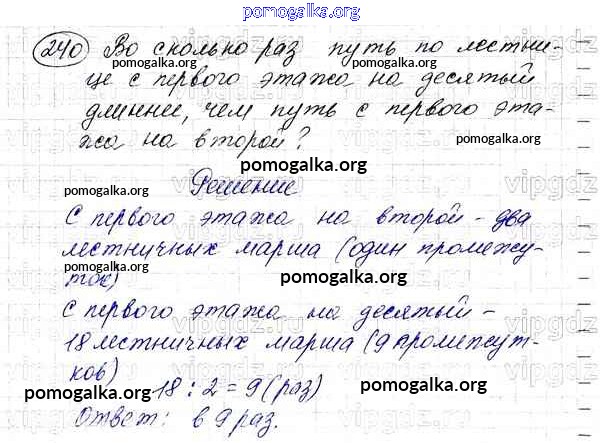 pomogalka.org
240 Во сколько раз путь по лестни-
це с первого этажа на десятый
pomogalka.org
длинни, чем путь с первого эта-
pomogalka.org
жа на второй?
pomogalka.org
Решение
pomogalka.org
С первого этажа на второй - два
лестничных марша (один промежу-
pomogalka.org
ток)
pomogalka.org
С первого этажа на десятый -
18 лестничных марша (9 промежут-
ков)
pomogalka.org
18 : 2 = 9 (раз)
pomogalka.org
Ответ: в 9 раз.
vipgdz.ru